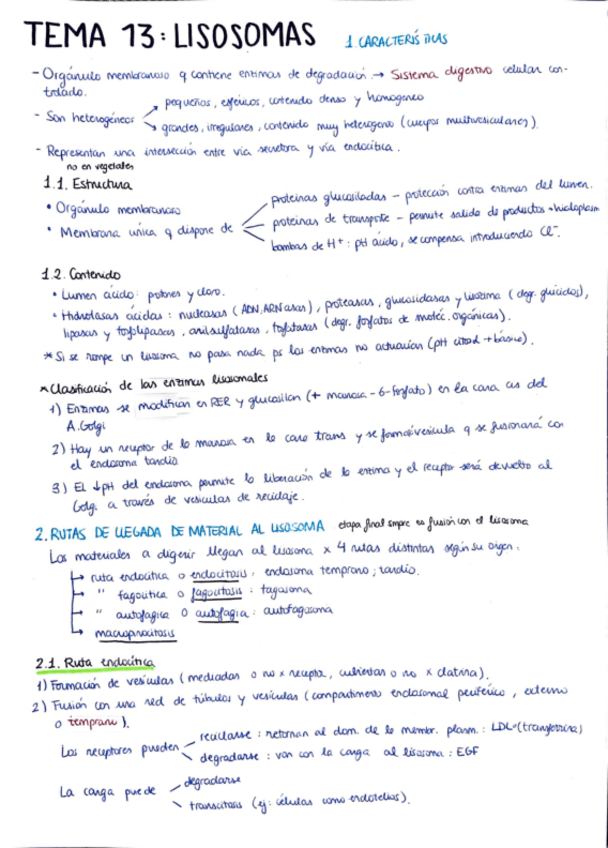 TEMA 13: LISOSOMAS 1. CARACTERÍSTICAS
- Orgánulo membranoso q contiene enzimas de degradación. → Sistema digestivo celular con-
trolado.
- Son heterogéneos
pequeños, esféricos, contenido denso y homogéneo
grandes, irregulares, contenido muy heterogeneo (cuerpos multivesiculares).
- Representan una intersección entre vía secretora y vía endocítica.
no en vegetales
1.1. Estructura
• Orgánulo membranoso
• Membrana única q dispone de
proteínas glucosiladas - protección contra enzimas del lumen.
proteínas de transporte - permite salida de productos → hialoplasm
bombas de H+: pH ácido, se compensa introduciendo Cl-.
1.2. Contenido
• Lumen ácido: protones y cloro.
• Hidrolasas ácidas: nucleasas (ADN, ARNasas), proteasas, glucosidasas y lisozima (degr. glúcidos),
lipasas y fosfolipasas, arilsulfatasas, fosfatasas (degr. fosfatos de moléc. orgánicas).
* Si se rompe un lisosoma no pasa nada ps las enzimas no actuarían (pH citosol + básico).
* Clasificación de las enzimas lisosomales
1) Enzimas se modifican en RER y glucosilan (+ manosa-6-fosfato) en la cara cis del
A. Golgi
2) Hay un receptor de la manosa en la cara trans y se forma vesícula q se fusionará con
el endosoma tardío
3) El ↓pH del endosoma permite la liberación de la enzima y el receptor será devuelto al
Golgi a través de vesículas de reciclaje.
2. RUTAS DE LLEGADA DE MATERIAL AL LISOSOMA etapa final smpre es fusión con el lisosoma
Los materiales a digerir llegan al lisosoma x 4 rutas distintas según su origen.
ruta endocítica o endocitosis: endosoma temprano; tardío.
" fagocítica o fagocitosis: fagosoma
" autofágica o autofagia: autofagosoma
macropinocitosis
2.1. Ruta endocítica
1) Formación de vesículas (mediadas o no x receptor, cubiertas o no x clatrina).
2) Fusión con una red de túbulos y vesículas (compartimento endosomal periférico, externo
o temprano).
Los receptores pueden
reciclarse: retornan al dom. de la membr. plasm.: LDL (transferrina)
degradarse: van con la carga al lisosoma: EGF
La carga puede
degradarse
transcitosis (ej: células como endotelios).